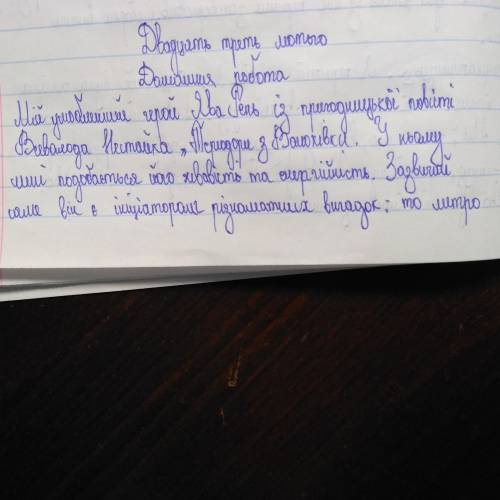 Двадцять третє лютого
Домашня робота
Мій улюблений герой Ява Рень із пригодницької повісті
Всеволода Нестайка „Тореадори з Васюківки. У ньому
мні подобається його жвавість та енергійність. Зазвичай
саме він є ініціатором різноматних вигадок: то метро